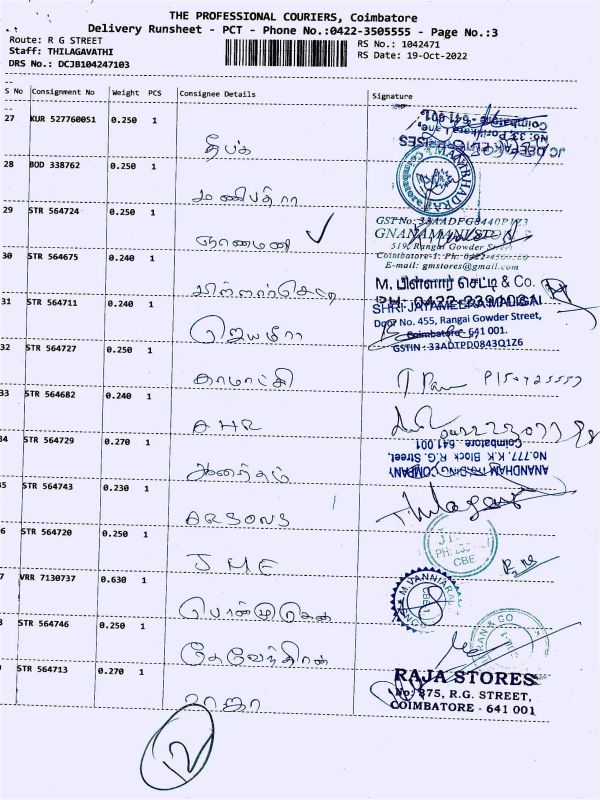 THE PROFESSIONAL COURIERS, Coimbatore
Delivery Runsheet - PCT - Phone No.:0422-3505555 - Page No.:3
Route: R G STREET
Staff: THILAGAVATHI
DRS No.: DCJB104247103
RS No.: 1042471
RS Date: 19-Oct-2022
S No Consignment No Weight PCS Consignee Details Signature
27 KUR 527760051 0.250 1 தீபக்
28 BOD 338762 0.250 1 மணிபத்ரா
29 STR 564724 0.250 1 ஞானமணி
30 STR 564675 0.240 1 பிள்ளார்செட்டி
31 STR 564711 0.240 1 ஜெயமீரா
32 STR 564727 0.250 1 காமாட்சி
33 STR 564682 0.240 1 AHR
34 STR 564729 0.270 1 ஆனந்தம்
5 STR 564743 0.230 1 ARSONS
6 STR 564720 0.250 1 JME
7 VRR 7130737 0.630 1
STR 564746 0.250 1 தேவேந்திரன்
STR 564713 0.270 1 ராஜா
Coimbatore - 641 001.
GST No: 33AADFG8440P1Z3
GNANAMANI STORES
519, Rangai Gowder Street
Coimbatore-1. Ph: 0422-
E-mail: gmstores@gmail.com
M. பிள்ளார் செட்டி & Co.
PH: 0422-
SHRI JAYAMEERA MALIGAI
Door No. 455, Rangai Gowder Street,
Coimbatore - 641 001.
GSTIN : 33ADTPD0843Q1Z6
ANANDHAM TRADING COMPANY
No.777, K.K. Block R.G. Street,
Coimbatore - 641 001
Thilagav
CBE.
RAJA STORES
No: 375, R.G. STREET,
COIMBATORE - 641 001
12